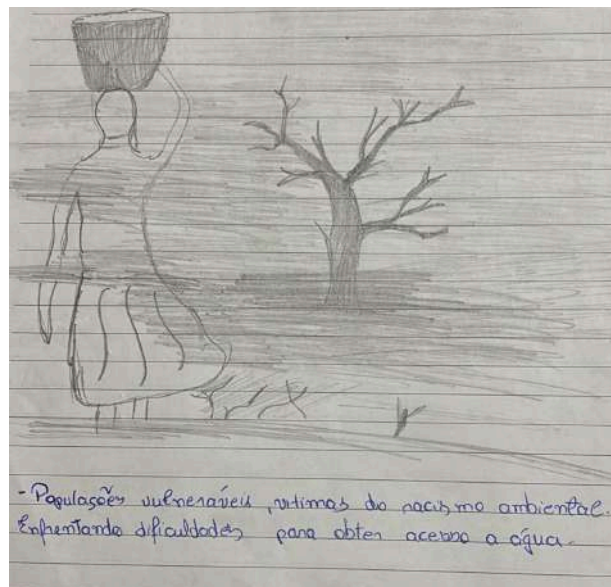 - Populações vulneráveis, vitimas do racismo ambiental.
Enfrentando dificuldades para obter acesso a água.